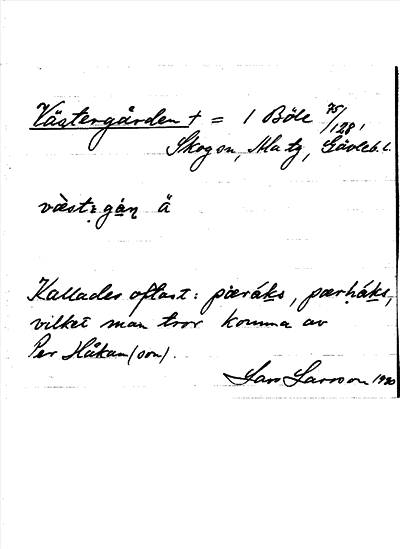 Västergården † = 1 Böle 75/128,
Skogsm, Matg, Gävleb. l.
væ̀st: gáɳ Ä
Kallades oftast: pæráks, pærháks,
vilket man tror komma av
Per Håkan(son).
Lars Larsson 1920